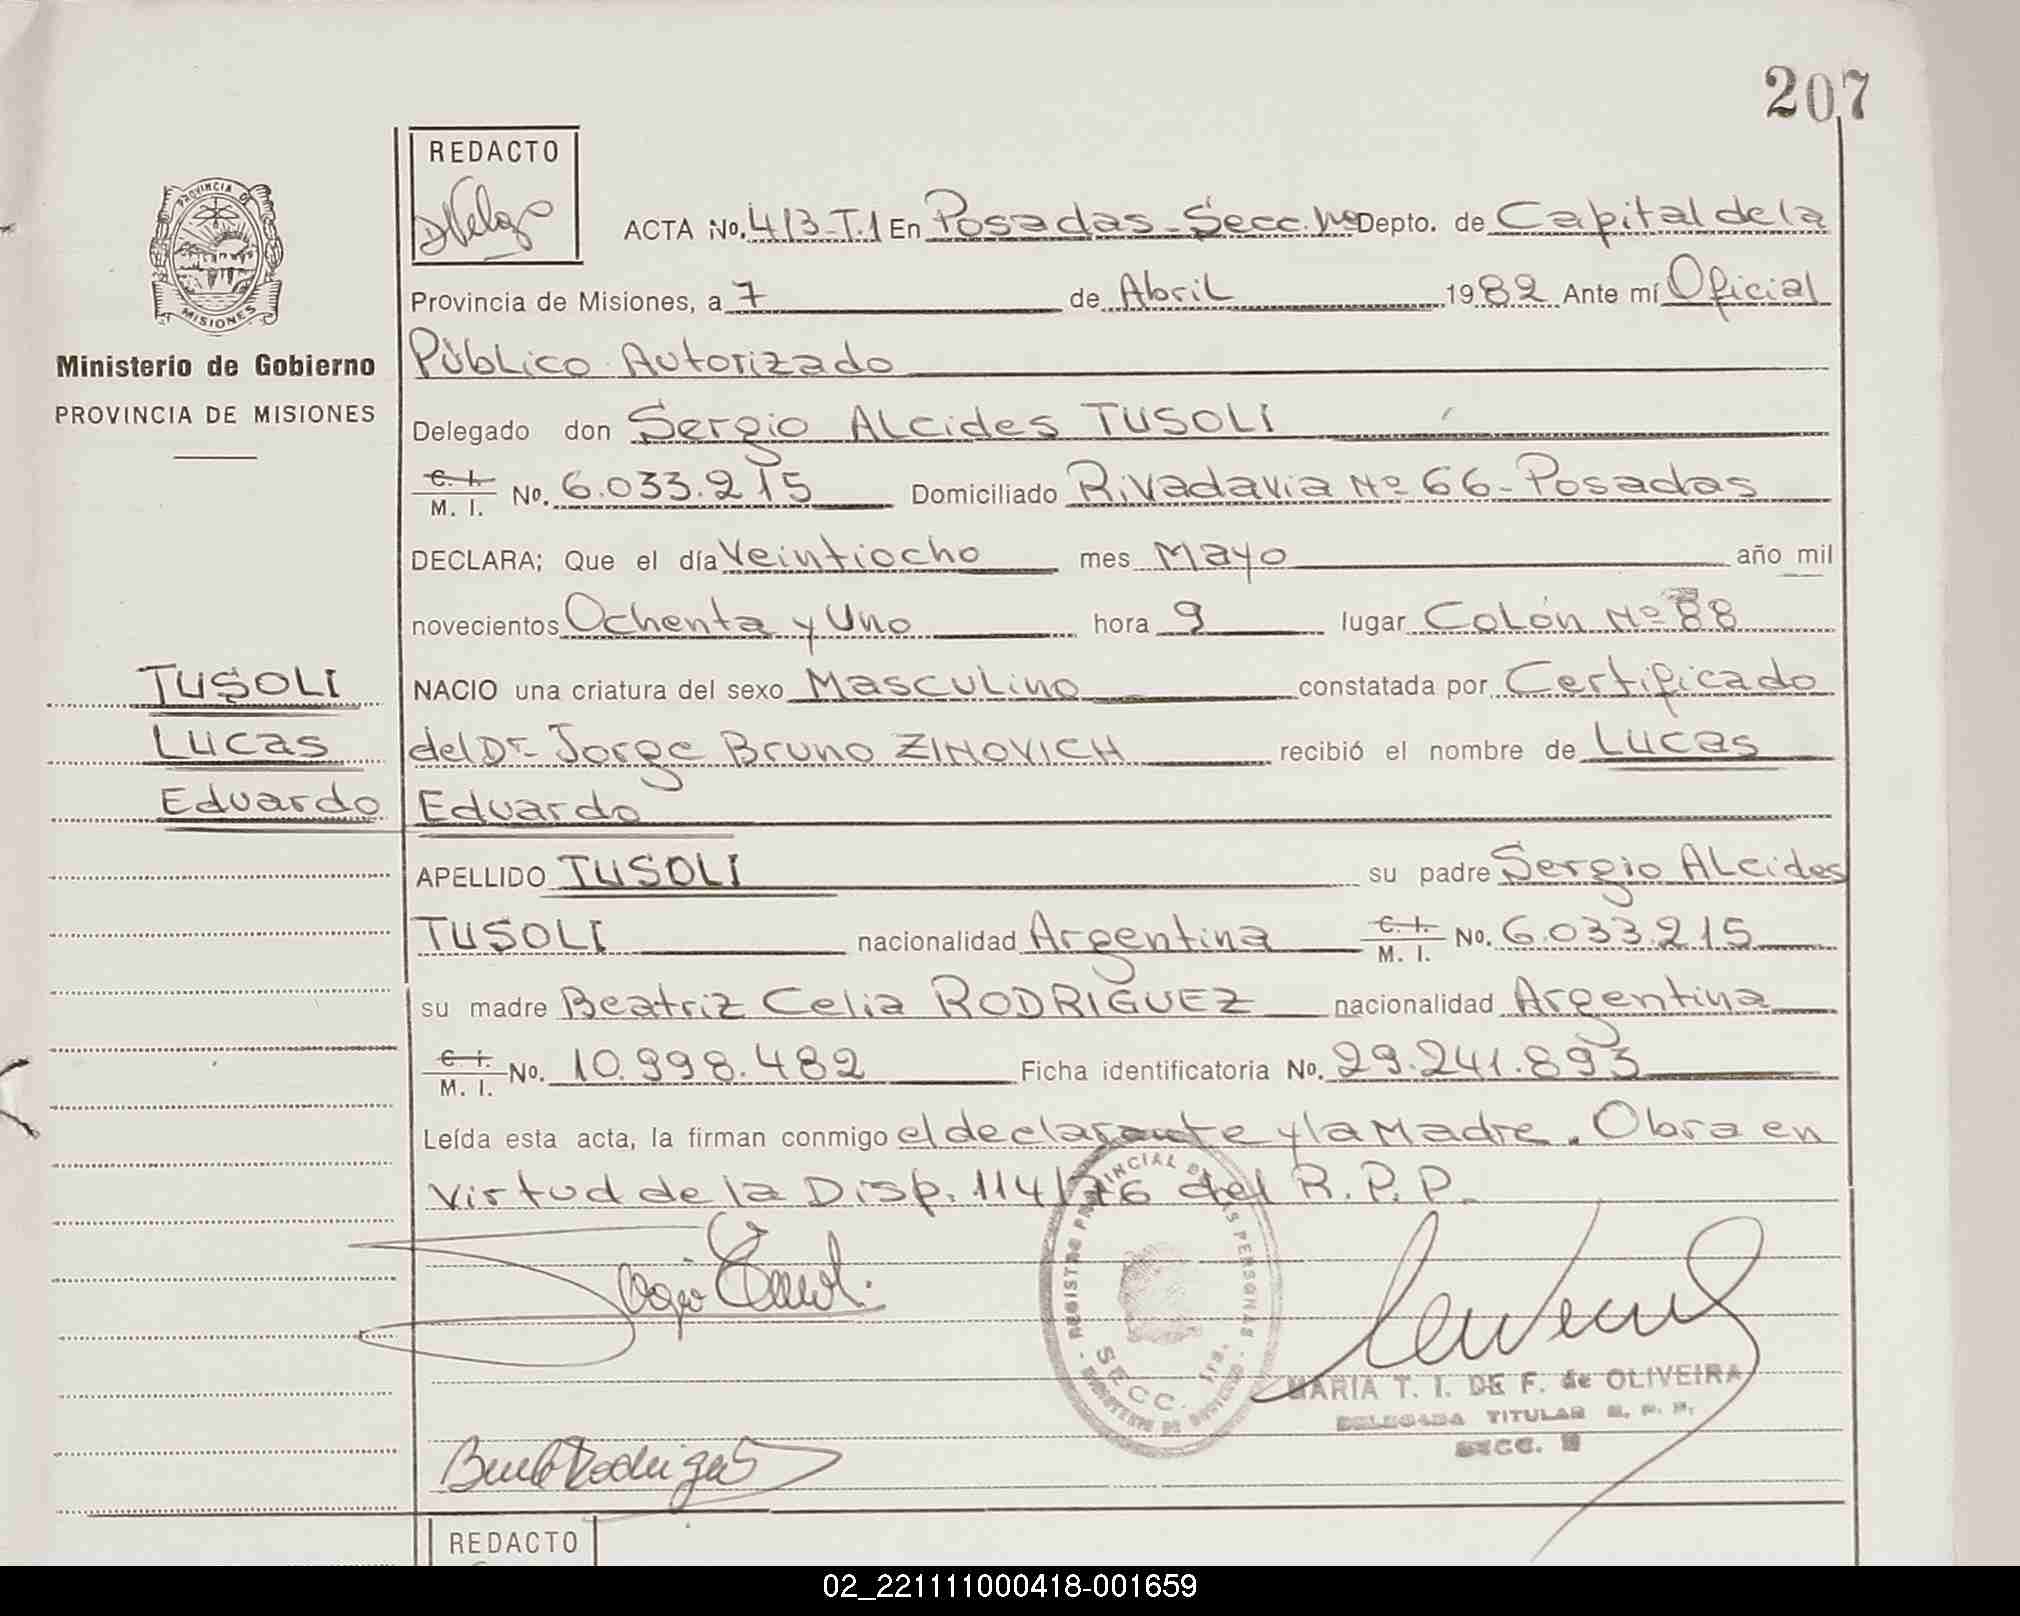 207
REDACTO
ACTA No. 413-T.1 En Posadas-Secc. 1ra Depto. de Capital de la
Provincia de Misiones, a 7 de Abril 1982 Ante mí Oficial
Público Autorizado
PROVINCIA DE
MISIONES
Ministerio de Gobierno
PROVINCIA DE MISIONES
Delegado don Sergio Alcides TUSOLI
C. I. M. I. No. 6.033.215 Domiciliado Rivadavia Nº 66-Posadas
DECLARA; Que el día Veintiocho mes Mayo año mil
novecientos Ochenta y Uno hora 9 lugar Colón Nº 88
TUSOLI
Lucas
Eduardo
NACIO una criatura del sexo Masculino constatada por Certificado
del Dr. Jorge Bruno ZINOVICH recibió el nombre de Lucas
Eduardo
APELLIDO TUSOLI su padre Sergio Alcides
TUSOLI nacionalidad Argentina C. I. M. I. No. 6.033.215
su madre Beatriz Celia RODRIGUEZ nacionalidad Argentina
C. I. M. I. No. 10.998.482 Ficha identificatoria No. 29.241.893
Leída esta acta, la firman conmigo el declarante y la Madre. Obra en
virtud de la Disp. 114/76 del R.P.P.
REGISTRO PROVINCIAL DE LAS PERSONAS
SECC. 1ra.
MARIA T. I. DE F. de OLIVEIRA
DELEGADA TITULAR R. P. P.
SECC.
REDACTO
02_221111000418-001659